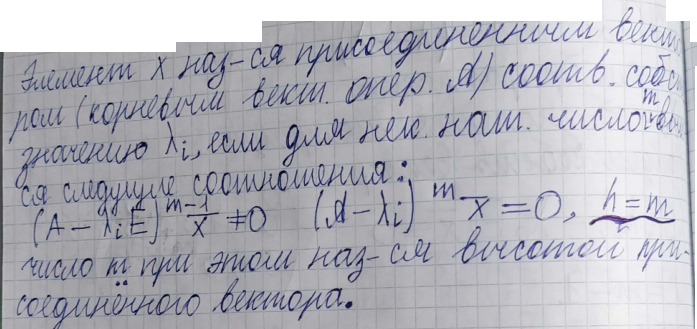 Элемент x наз-ся присоединённым векто
ром (корневым вект. опер. A) соотв. собс
значению λi, если для нек. нат. число m вы
ся следущие соотношения:
(A - λiE)^{m-1} x̄ ≠ 0 (A - λi)^m x̄ = 0, h = m
число m при этом наз-ся высотой при-
соединённого вектора.